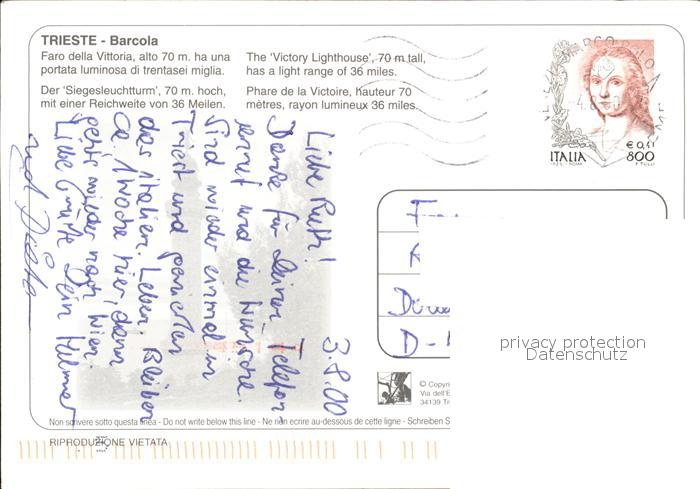 TRIESTE - Barcola
Faro della Vittoria, alto 70 m. ha una
portata luminosa di trentasei miglia.
Der 'Siegesleuchtturm', 70 m. hoch,
mit einer Reichweite von 36 Meilen.
The 'Victory Lighthouse', 70 m tall,
has a light range of 36 miles.
Phare de la Victoire, hauteur 70
mètres, rayon lumineux 36 miles.
€ 0,41
ITALIA 800
3.8.00
Liebe Ruth!
Danke für Deinen Telefon-
anruf und die Wünsche.
Sind wieder einmal in
Triest und genießen
das italien. Leben. Bleiben
ca. 1 Woche hier, dann
geht's wieder nach Wien.
Liebe Grüße Dein Helmut
und
D-
privacy protection
Datenschutz
© Copyri
Via dell'E
34139 Tri
Non scrivere sotto questa linea - Do not write below this line - Ne rien ecrire au-dessous de cette ligne - Schreiben S
RIPRODUZIONE VIETATA